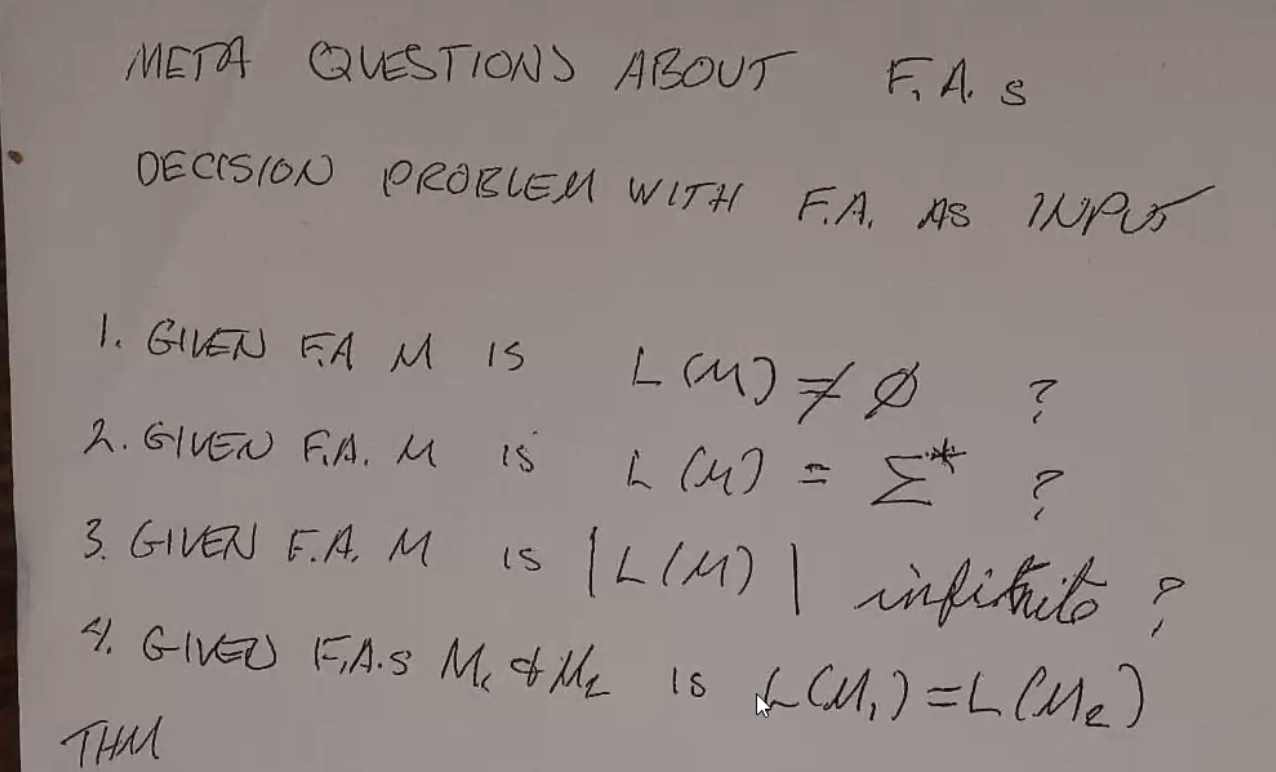 META QUESTIONS ABOUT F.A.s
DECISION PROBLEM WITH F.A. AS INPUT
1. GIVEN F.A M IS L(M) ≠ ∅ ?
2. GIVEN F.A. M IS L(M) = Σ* ?
3. GIVEN F.A. M IS |L(M)| infinite ?
4. GIVEN F.A.s M₁ & M₂ IS L(M₁) = L(M₂)
THM